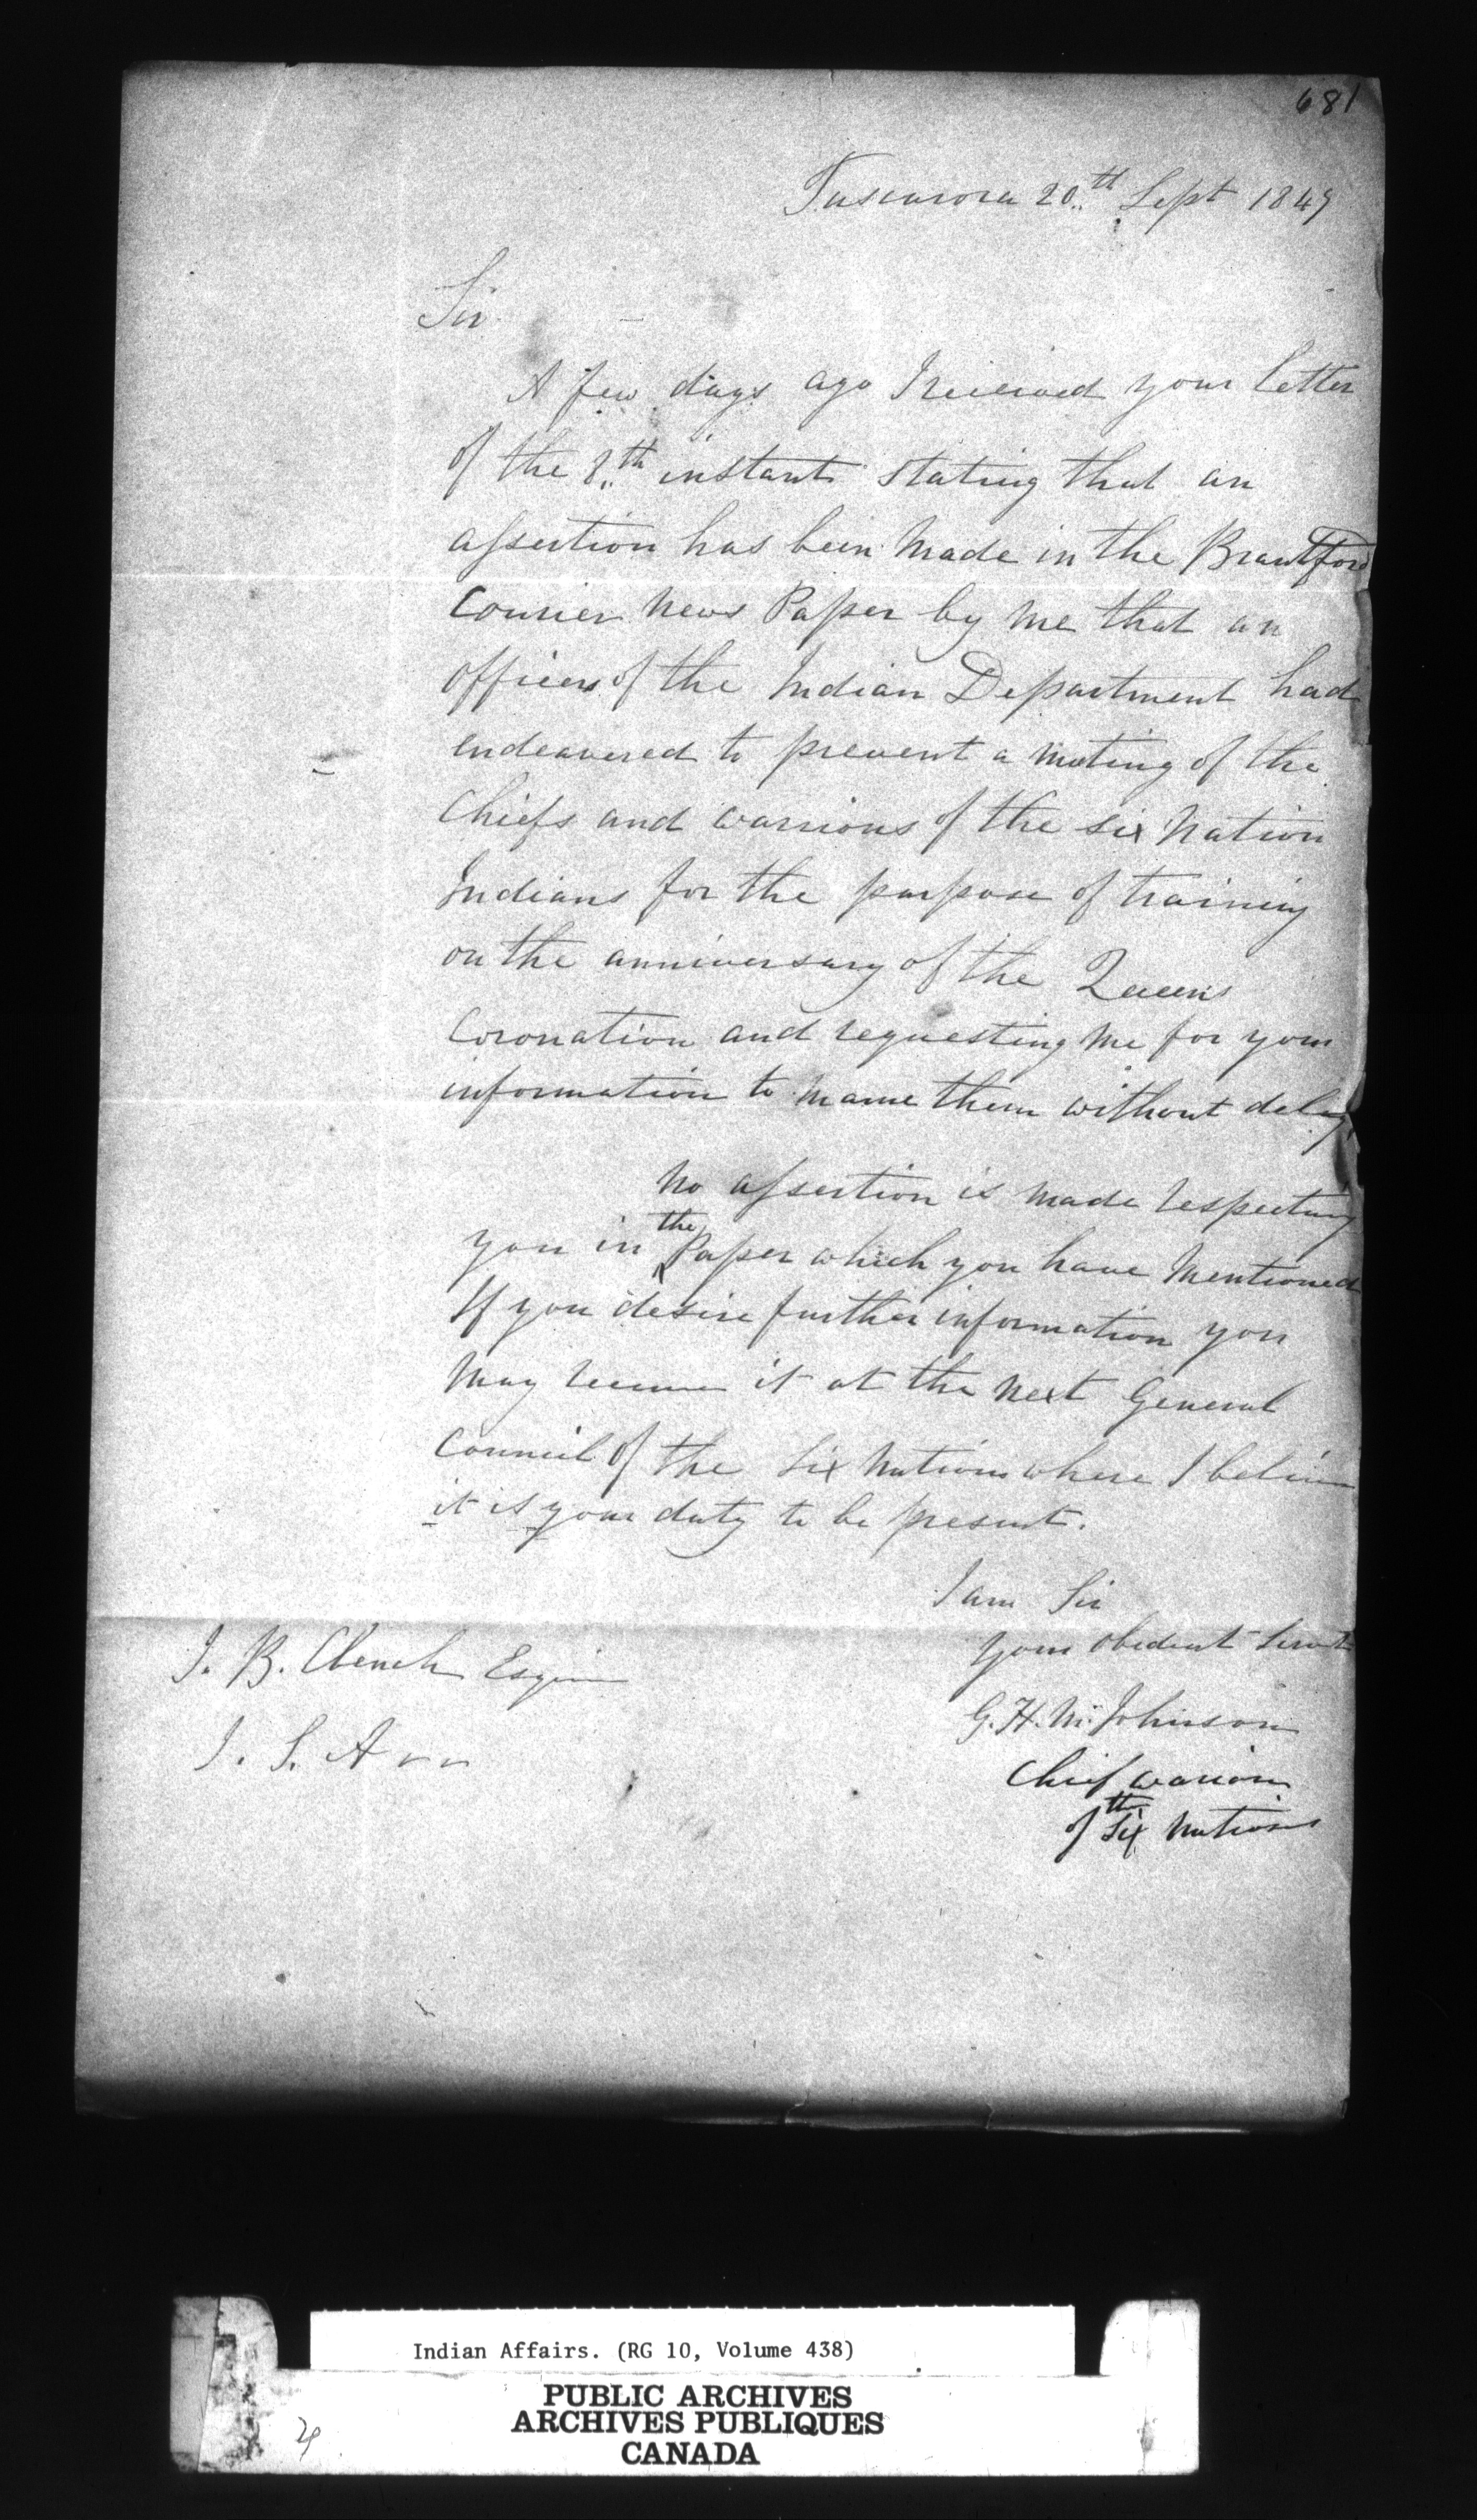 681
Tuscarora 20th Sept 1849
Sir
A few days ago I received your letter
of the 8th instant stating that an
assertion has been made in the Brantford
Courier News Paper by me that an
officers of the Indian Department had
endeavered to prevent a meeting of the
Chiefs and warriors of the six Nation
Indians for the purpose of training
on the anniversary of the Queens
Coronation and requesting me for your
information to name them without delay
No assertion is made respecting
you in the Paper which you have mentioned
If you desire further information you
may receive it at the next General
Council of the Six Nations where I believe
it is your duty to be present.
I am Sir
your obedient Servt
J. B. Clench Esquire
G. H. M. Johnson
J. S. A
Chief warrior
of the Six Nations
Indian Affairs. (RG 10, Volume 438)
PUBLIC ARCHIVES
ARCHIVES PUBLIQUES
CANADA